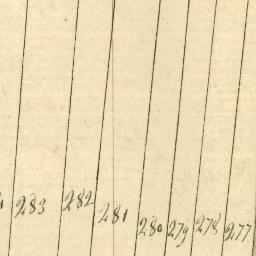 283 282 281 280 279 278 277